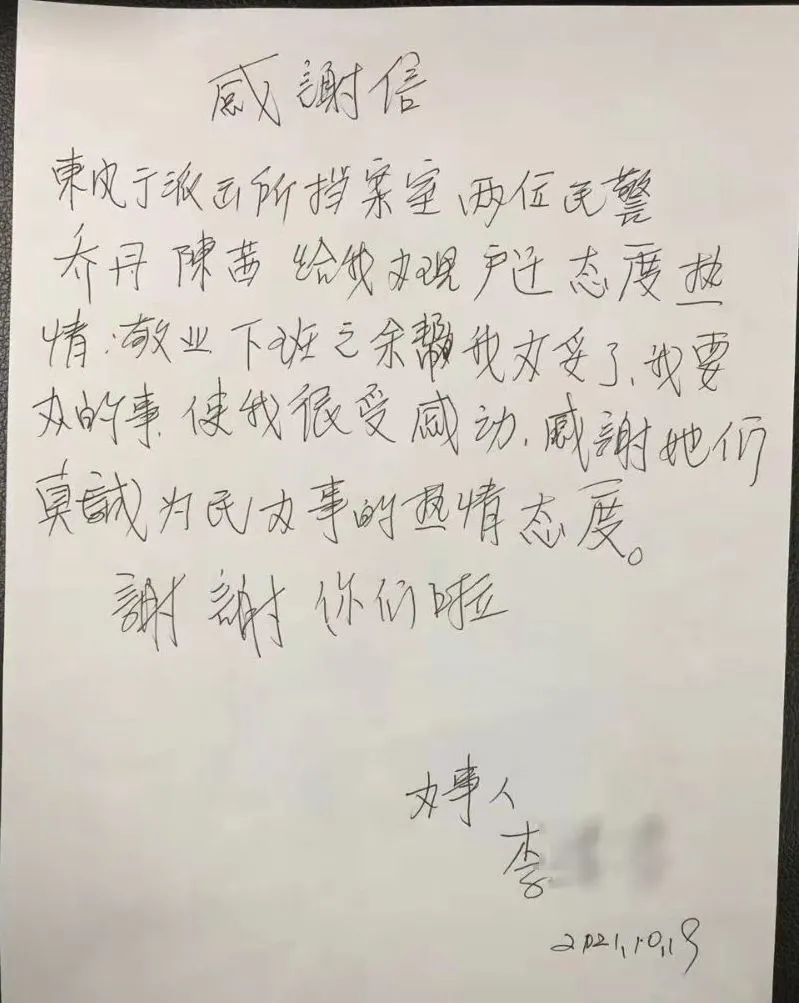 感謝信
東风于派出所挡案室、两位民警
乔丹 陳茜 给我办理户迁 态度热
情、敬业 下班之余帮我办妥了、我要
办的事、使我很受感动、感謝她们
真誠为民办事的热情态度。
謝謝你们啦
办事人
李
2021.10.19